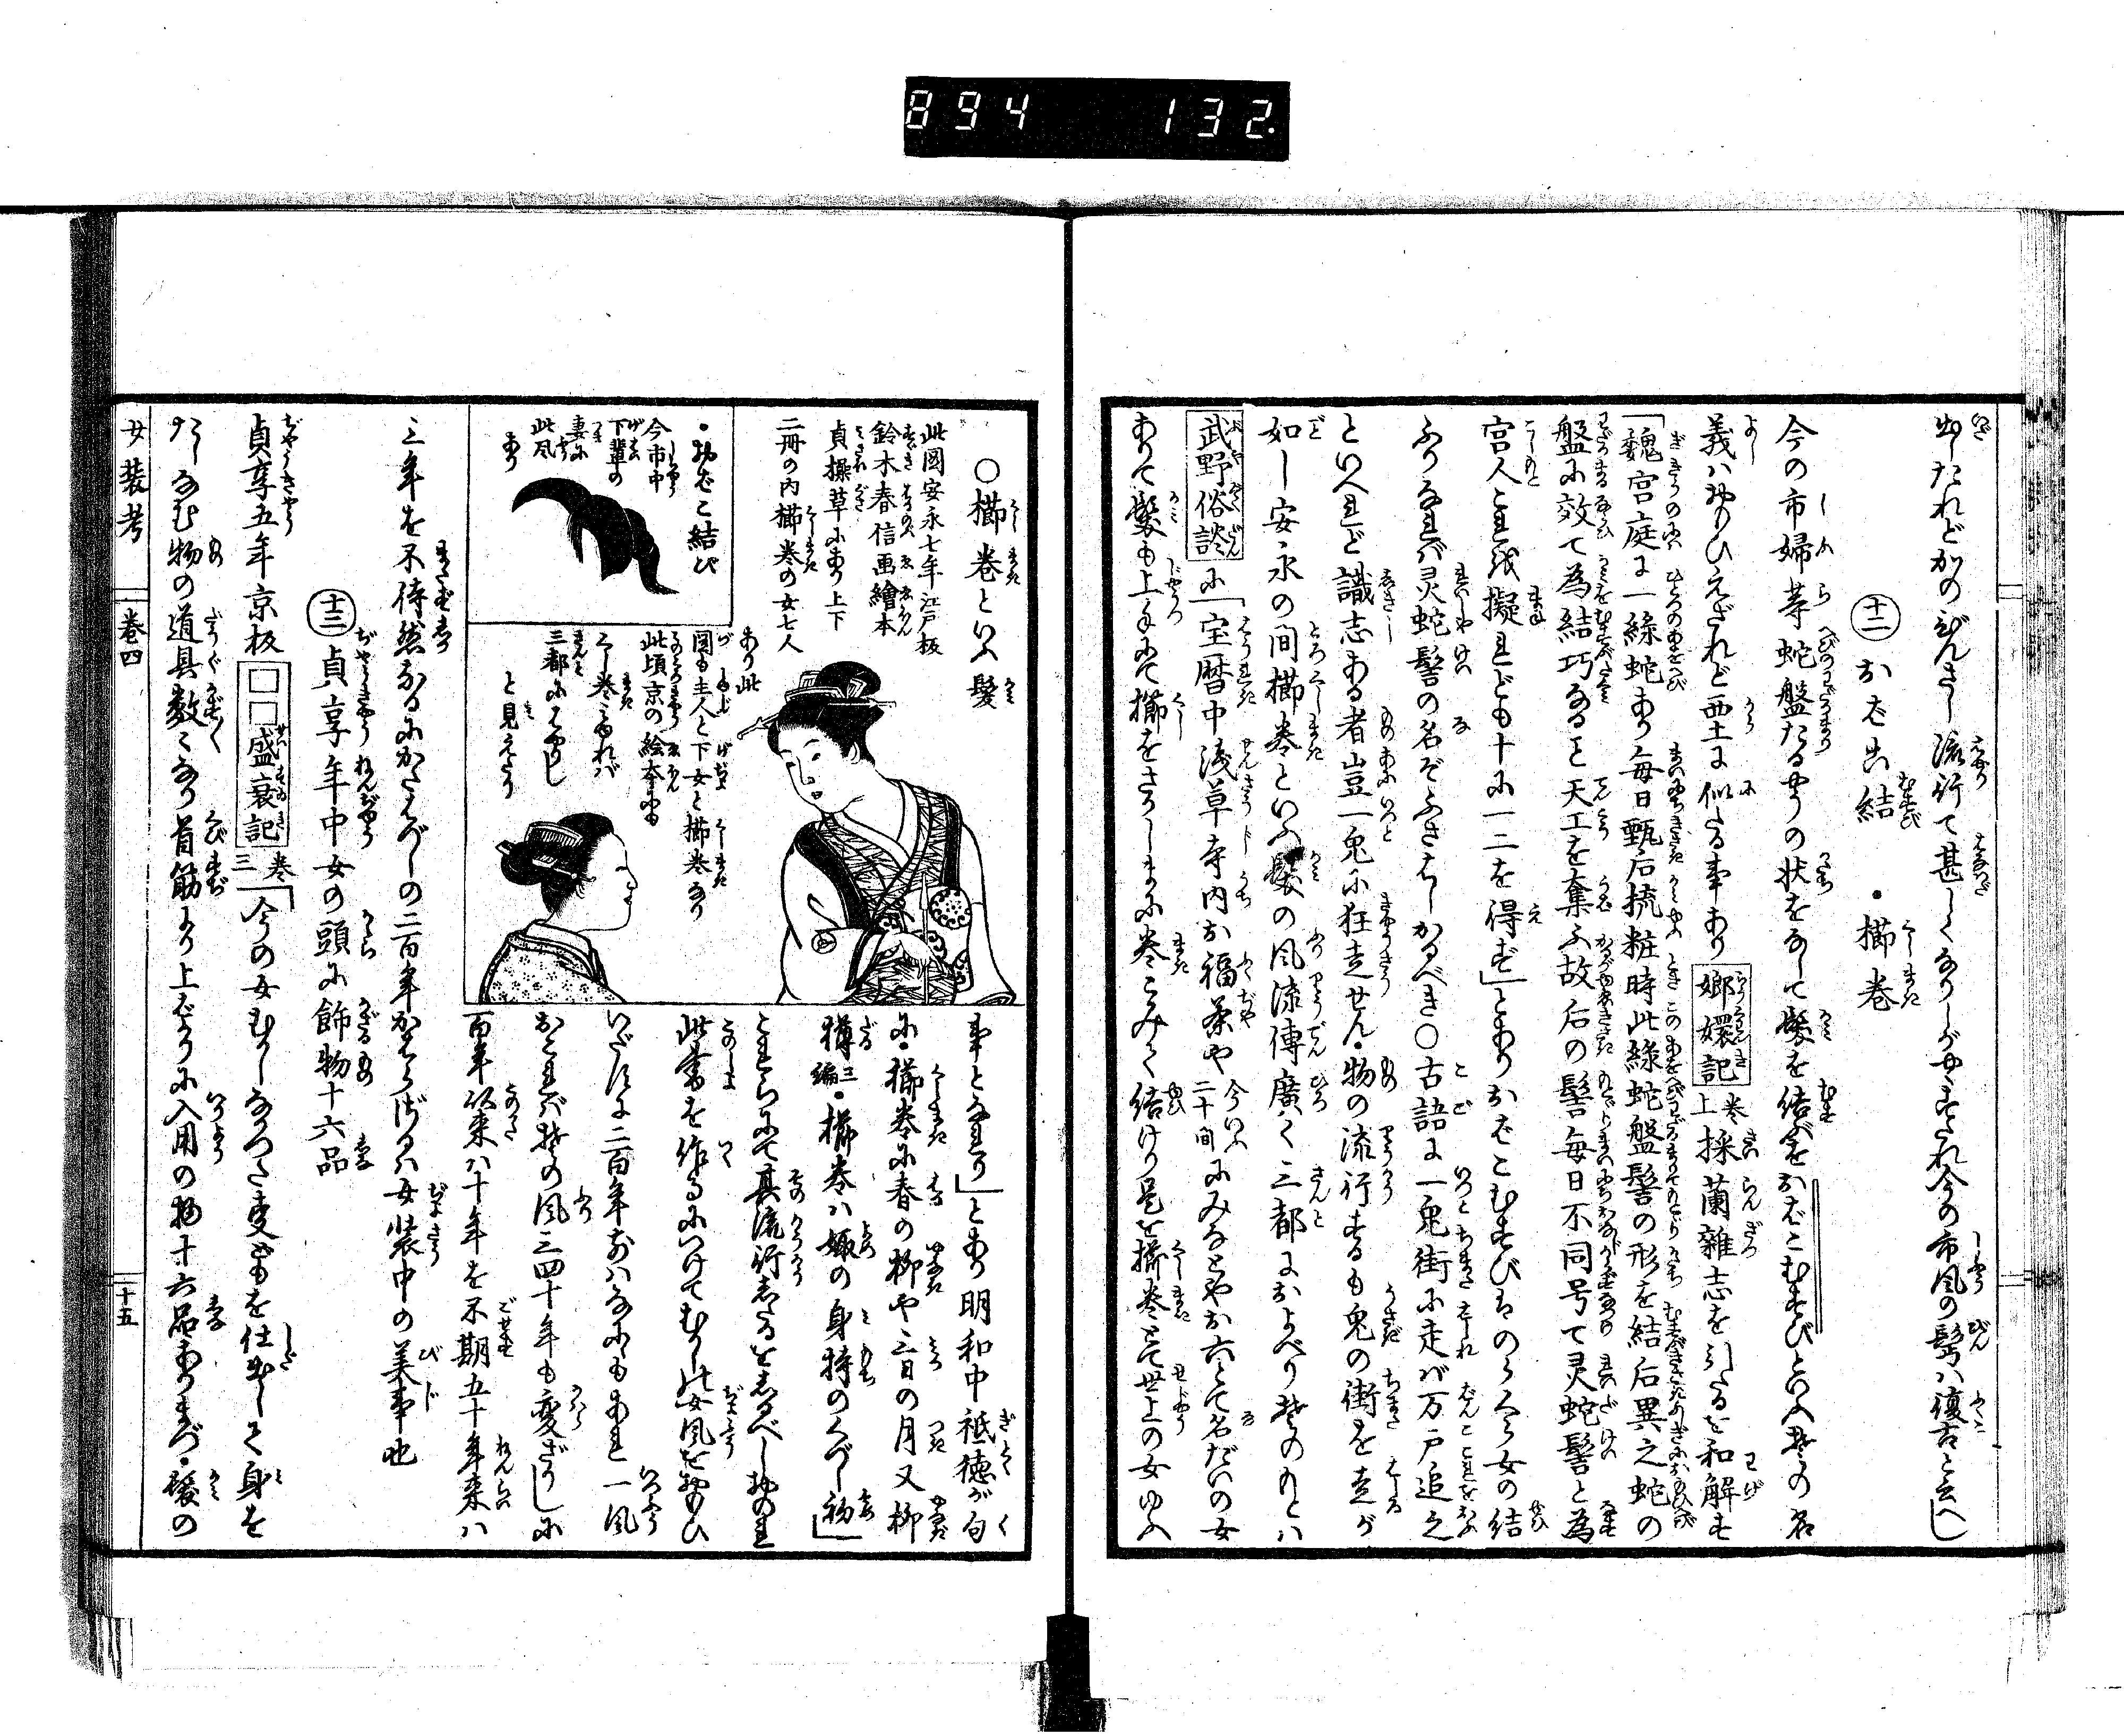 894 132.
出たれどかのびんさし流行て甚しくなりしがやゝすたれ今の市風の髩ハ復古と云べし
十二 おばこ結 ・櫛巻
今の市婦等蛇盤たるやうの状をなして髪を結ぶをおばこむすびといふ其の名
義ハおもひえざれど西土に似たる事あり 嫏嬛記 上巻 採蘭雑志を引たるを和解す
「魏宮庭に一緑蛇あり毎日甄后梳粧時此緑蛇盤髻の形を結后異之蛇の
盤に效て為結巧なること天工を奪ふ故后の髻毎日不同号て灵蛇髻と為
宮人これを擬れども十に一二を得ず」とありおばこむすびハのらくら女の結
ふりなれば灵蛇髻の名ぞふさはしかるべき〇古語に一兎街に走バ万戸追之
といへれど識志ある者豈一兎に狂走せん・物の流行するも兎の街を走が
如し安永の間櫛巻といふ髪の風流傳廣く三都におよべり其のもとハ
武野俗談に「宝暦中浅草寺内お福茶や 今いふ二十間 にみなとやお六とて名だいの女
ありて髪も上手にて櫛をさかしまに巻こみて結けり是を櫛巻とて世上の女ゆふ
〇櫛巻といふ髪
此圖安永七年江戸板
鈴木春信画繪本
貞操草にあり上下
二冊の内櫛巻の女七人
あり此
圖も主人と下女と櫛巻なり
此頃京の絵本にも
くし巻あれバ
三都にはやりし
と見えたり
・おばこ結び
今市中
下輩の
妻に
此風
あり
事となれり」とあり明和中祗徳が句
に・櫛巻に春の柳や三日の月又柳
樽 三編 ・櫛巻ハ娵の身持のくづし初」
これらにて其流行したるをしるべしおのれ
此書を作るにつけてむかしの女風をおもひ
いだすに二百年前ハなにもあれ一風
おこれバ其の風三四十年も変ざりしに
百年以来ハ十年を不期五十年来ハ
三年を不待然なるにかたはづしの二百年かはらざるハ女装中の美事也
十三 貞享年中女の頭に飾物十六品
貞享五年京板 □□盛衰記 三巻 「今の女むかしなかつた事どもを仕出して身を
たしなむ物の道具数〻なり首筋より上ばかりに入用の物十六品ありまづ・髪の
女装考 巻四 二十五